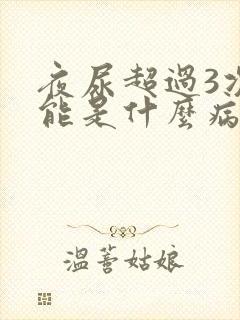 夜尿超過3次
能是什麼病
溫蓉姑娘